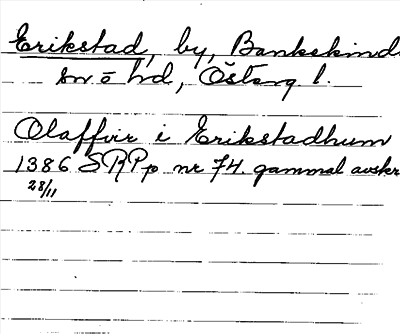 Erikstad, by, Bankekind
sn o hd, Östergl.
Olaffvir i Erikstadhum
1386 SRPp nr 74. gammal avskr
28/11